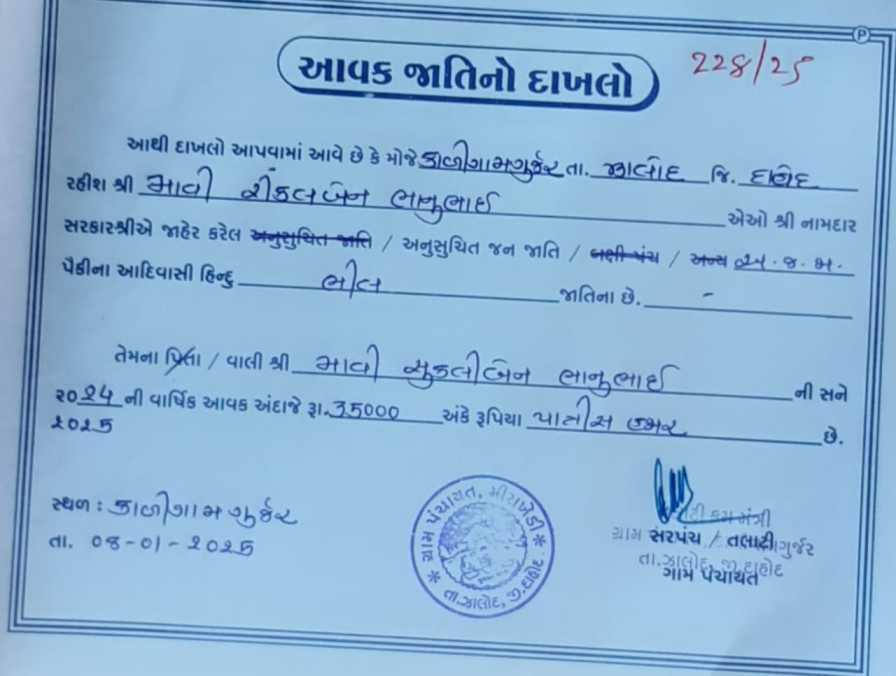 આવક જાતિનો દાખલો
228/25
આથી દાખલો આપવામાં આવે છે કે મોજે કાળીગામગુર્જર તા. ઝાલોદ જિ. દાહોદ
રહીશ શ્રી ભાવી ભાનુભાઈ એઓ શ્રી નામદાર
સરકારશ્રીએ જાહેર કરેલ અનુસુચિત જાતિ / અનુસુચિત જન જાતિ / બક્ષી પંચ / અન્ય અ.જ.જા.
પૈકીના આદિવાસી હિન્દુ ભીલ જાતિના છે. -
તેમના પિતા / વાલી શ્રી ભાવી ભાનુભાઈ ની સને
૨૦૨૪ ની વાર્ષિક આવક અંદાજે રૂા. 35000 અંકે રૂપિયા પાત્રીસ હજાર છે.
૨૦૨૫
સ્થળ : કાળીગામ ગુર્જર
તા. ૦૭-૦૧-૨૦૨૫
ગ્રામ પંચાયત, મીરાખેડી
તા.ઝાલોદ, જી.દાહોદ
મંત્રી
ગ્રામ સરપંચ / તલાટી ગુર્જર
તા.ઝાલોદ, જી.દાહોદ
ગામ પંચાયત